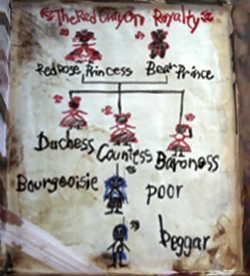 The Red Crayon Royalty
Red Rose Princess Bear Prince
Duchess Countess Baroness
Bourgeoisie poor
beggar